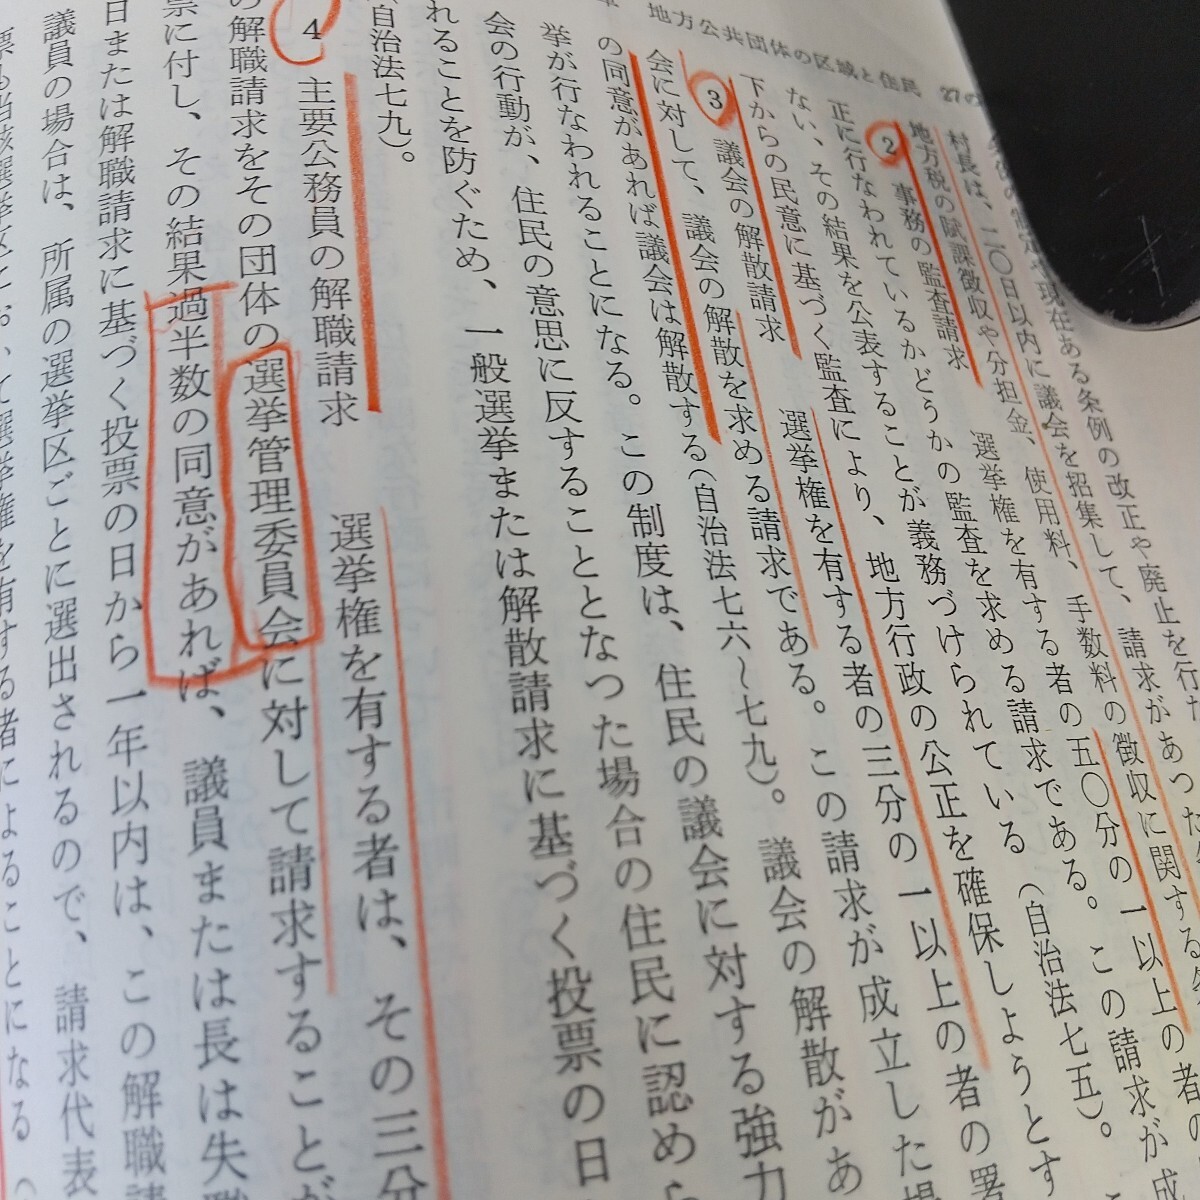 地方公共団体の区域と住民　27の
現在ある条例の改正や廃止を行
村長は、二〇日以内に議会を招集して、請求があつた
地方税の賦課徴収や分担金、使用料、手数料の徴収に関する
② 事務の監査請求　選挙権を有する者の五〇分の一以上の者の
正に行なわれているかどうかの監査を求める請求である。この請求が成
ない、その結果を公表することが義務づけられている（自治法七五）。
下からの民意に基づく監査により、地方行政の公正を確保しようとす
③ 議会の解散請求　選挙権を有する者の三分の一以上の者の署
会に対して、議会の解散を求める請求である。この請求が成立した場
の同意があれば議会は解散する（自治法七六〜七九）。議会の解散があ
挙が行なわれることになる。この制度は、住民の議会に対する強力
会の行動が、住民の意思に反することとなつた場合の住民に認めら
れることを防ぐため、一般選挙または解散請求に基づく投票の日
（自治法七九）。
4 主要公務員の解職請求　選挙権を有する者は、その三分
の解職請求をその団体の選挙管理委員会に対して請求することが
票に付し、その結果過半数の同意があれば、議員または長は失職
日または解職請求に基づく投票の日から一年以内は、この解職請
議員の場合は、所属の選挙区ごとに選出されるので、請求代表
票も当該選挙区において選挙権を有する者によることになる（